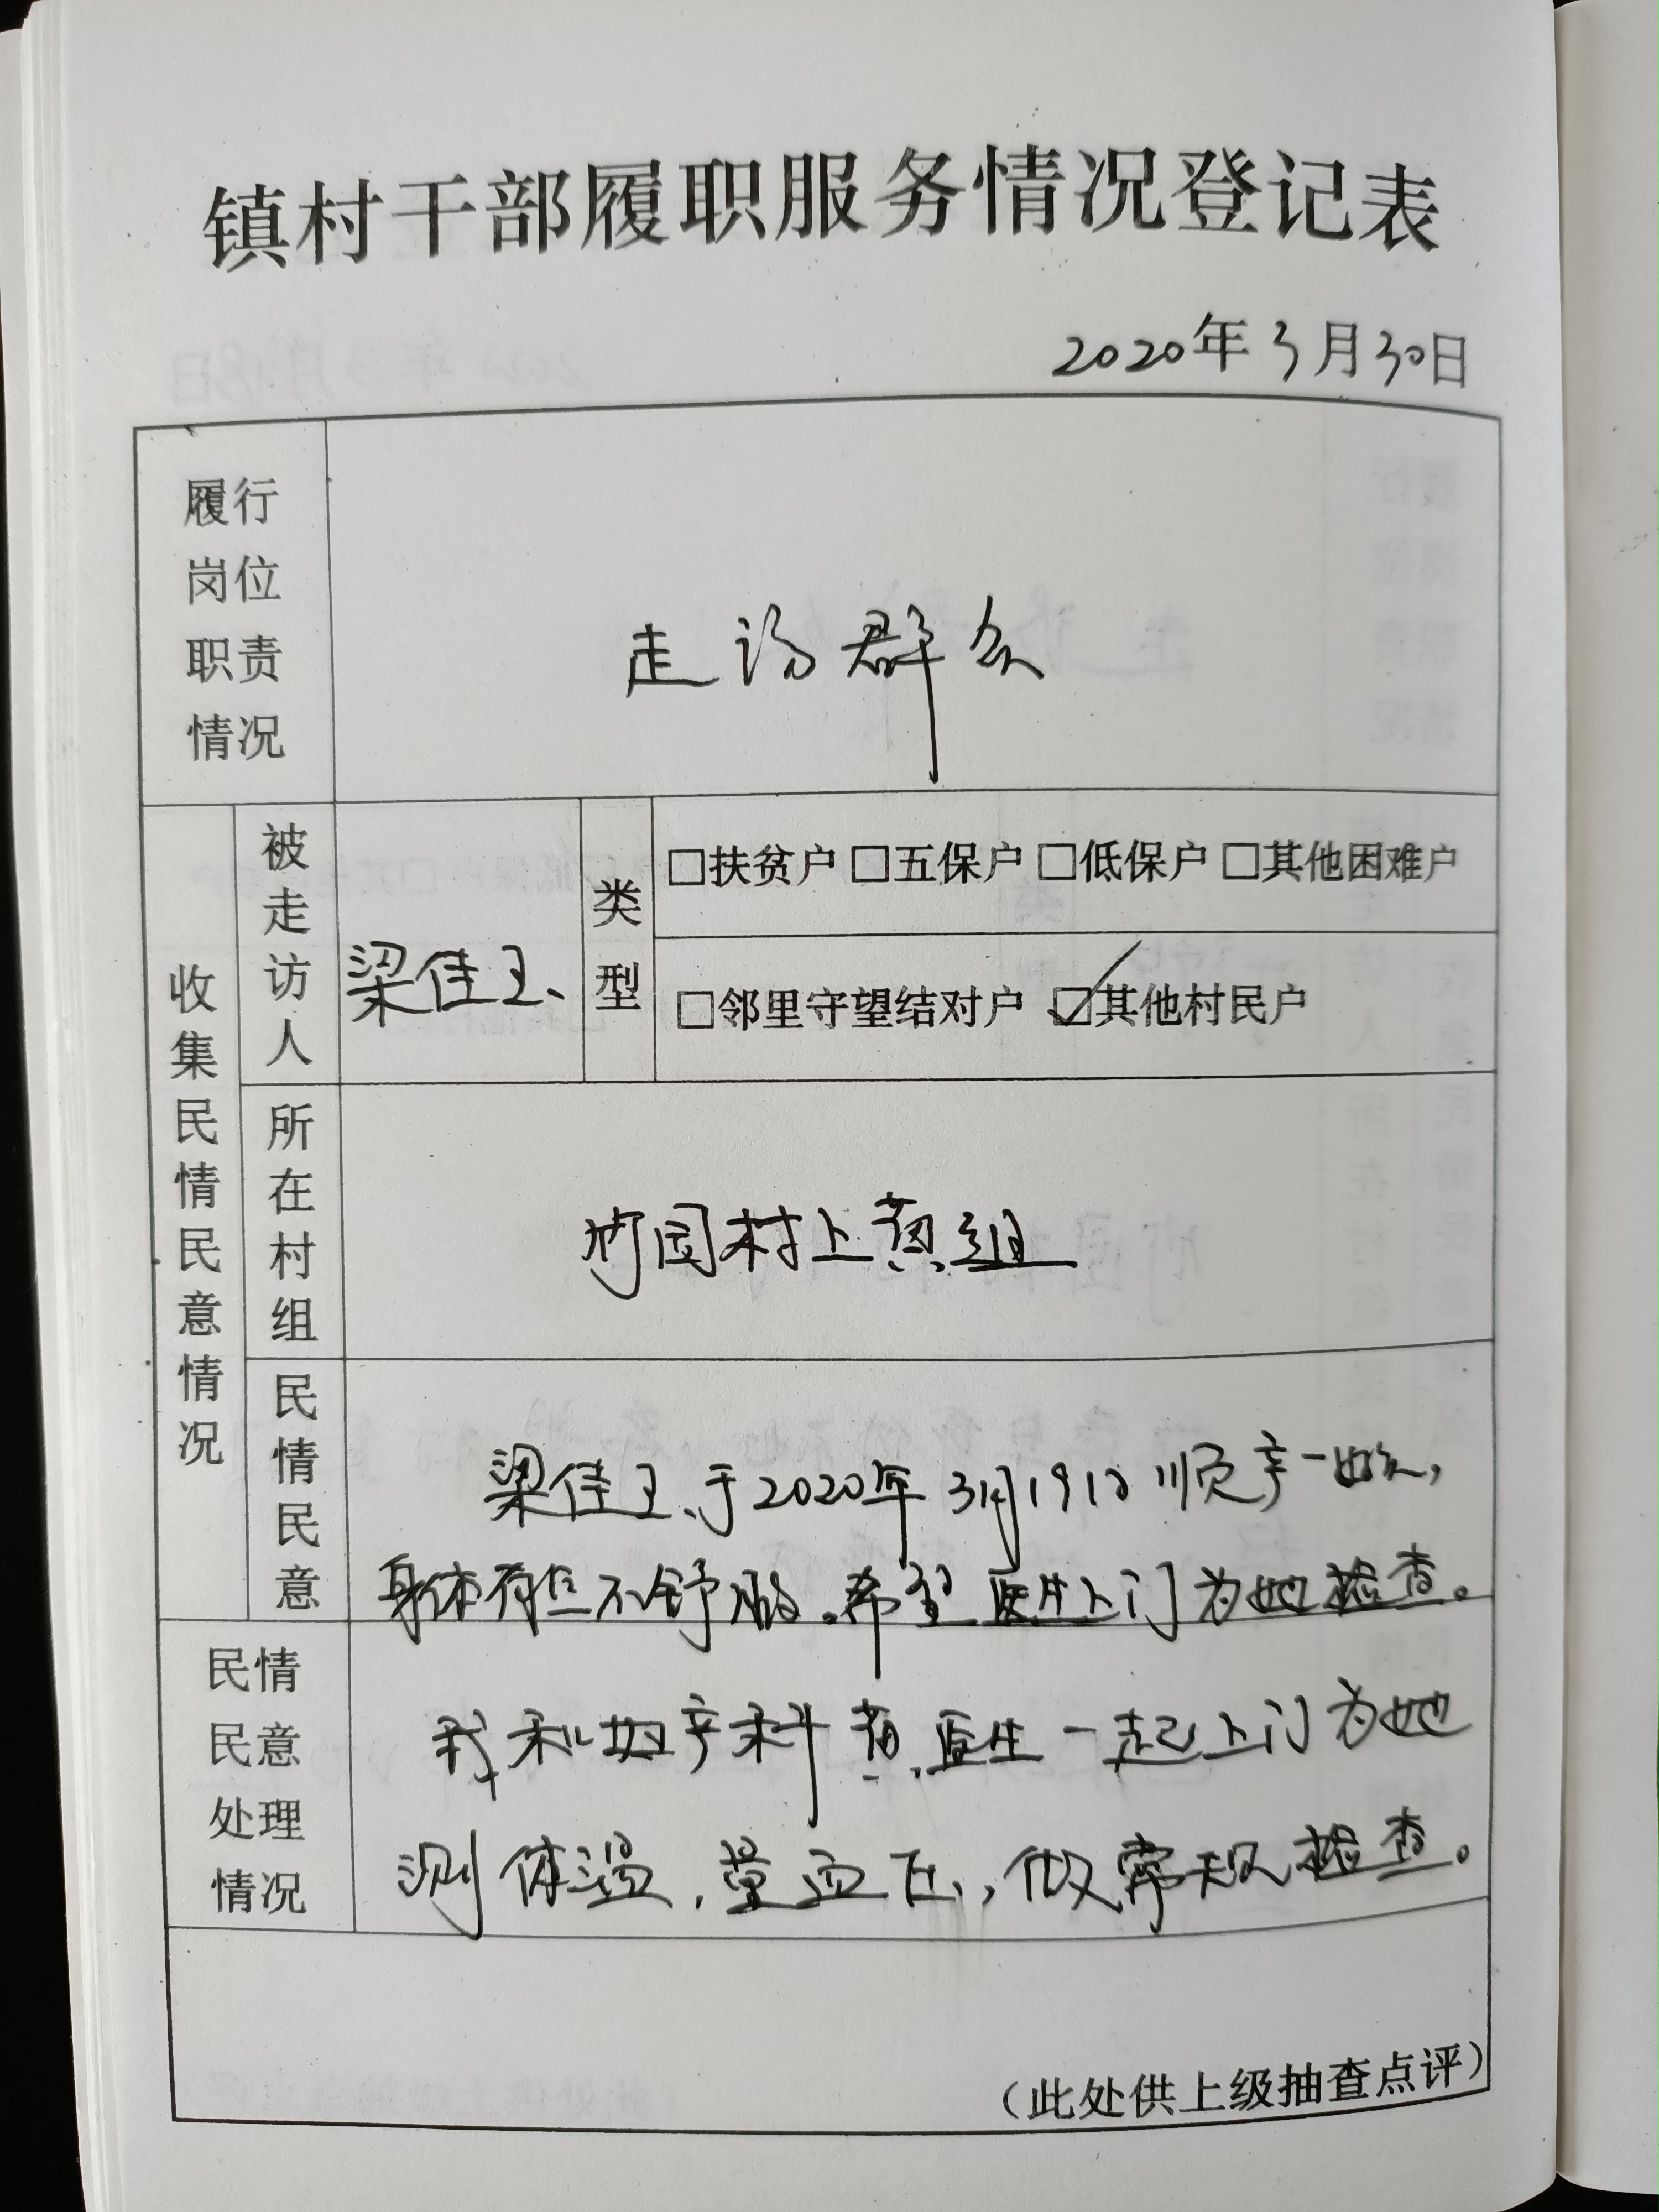 镇村干部履职服务情况登记表
2020年3月30日
履行
岗位
职责
情况
走访群众
收集民情民意情况
被走访人
梁佳玉
类型
□扶贫户 □五保户 □低保户 □其他困难户
□邻里守望结对户 ☑其他村民户
所在村组
竹园村上黄组
民情民意
梁佳玉于2020年3月19日顺产一女孩,
身体有些不舒服。希望医生上门为她检查。
民情
民意
处理
情况
我和妇产科黄医生一起上门为她
测体温,量血压,做常规检查。
(此处供上级抽查点评)